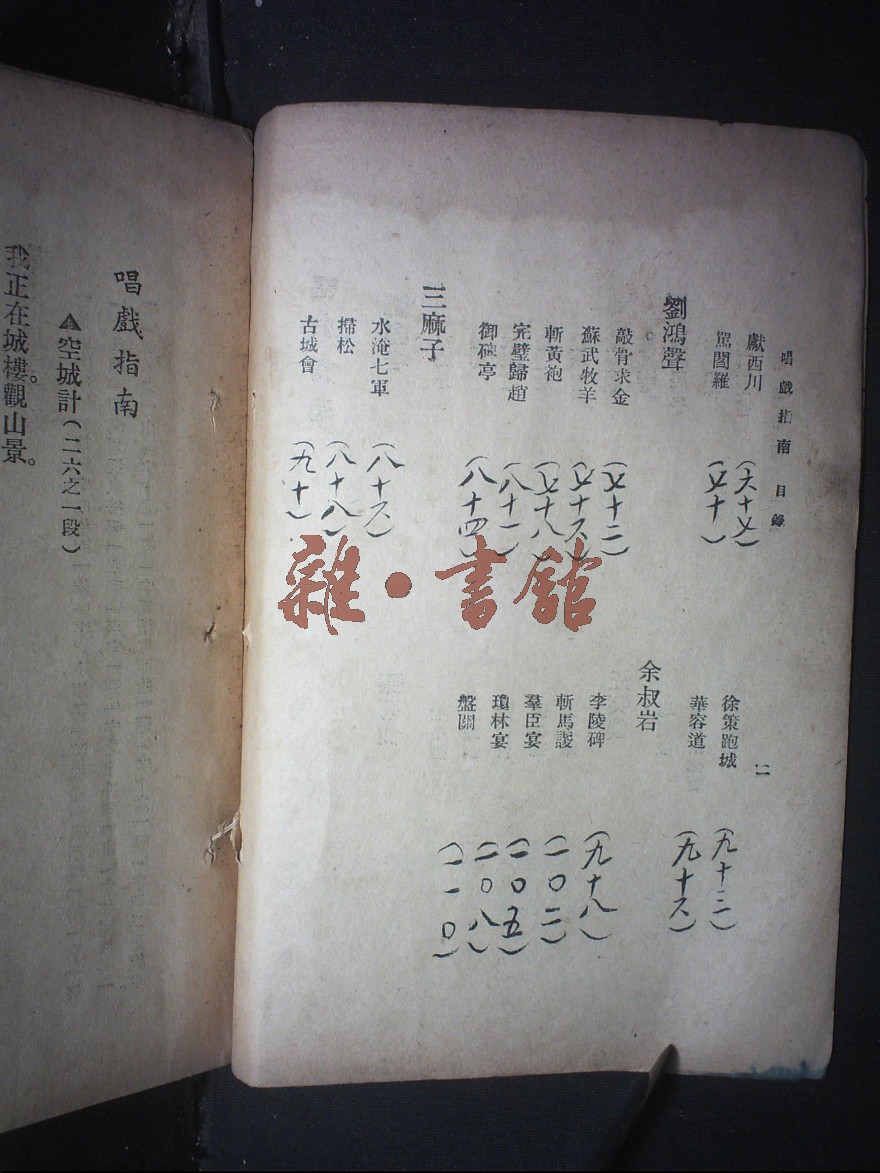 唱戲指南 目錄
獻西川 (六十七)
罵閻羅 (七十)
劉鴻聲
敲骨求金 (七十二)
蘇武牧羊 (七十六)
斬黃袍 (七十八)
完璧歸趙 (八十一)
御碑亭 (八十四)
三麻子
水淹七軍 (八十六)
掃松 (八十八)
古城會 (九十)
二
徐策跑城 (九十三)
華容道 (九十六)
余叔岩
李陵碑 (九十八)
斬馬謖 (一〇二)
羣臣宴 (一〇五)
瓊林宴 (一〇八)
盤關 (一一〇)
唱戲指南
▲空城計(二六之一段)
我正在城樓。觀山景。
雜·書館